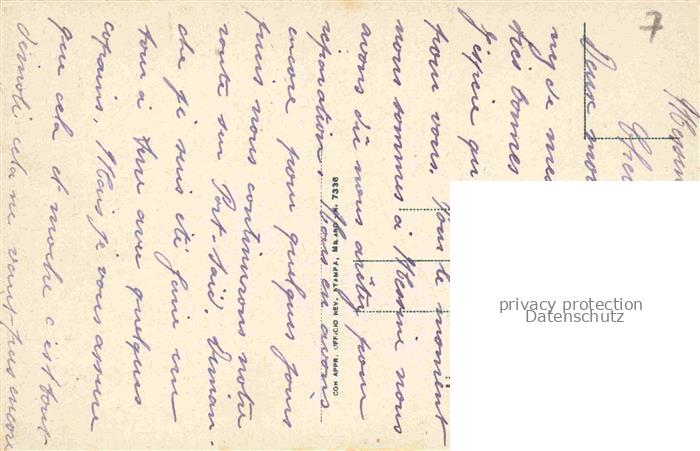 7
Messin
Cher
Deux mo
ny de me
très bonnes
J'espère qu
pour vous. Pour le moment
nous sommes à Messine nous
avons dû nous arêter pour
réparation. Nous en avons
encore pour quelques jours
puis nous continurons notre
route sur Port-Saïd. Diman-
che je suis été faire un
tour à terre avec quelques
copains. Mais je vous assure
que cela et moche c'est tout
démoli cela ne vaut pas encore
CON APPR. UFFICIO REV. STAMPA, MILANO 7336
privacy protection
Datenschutz